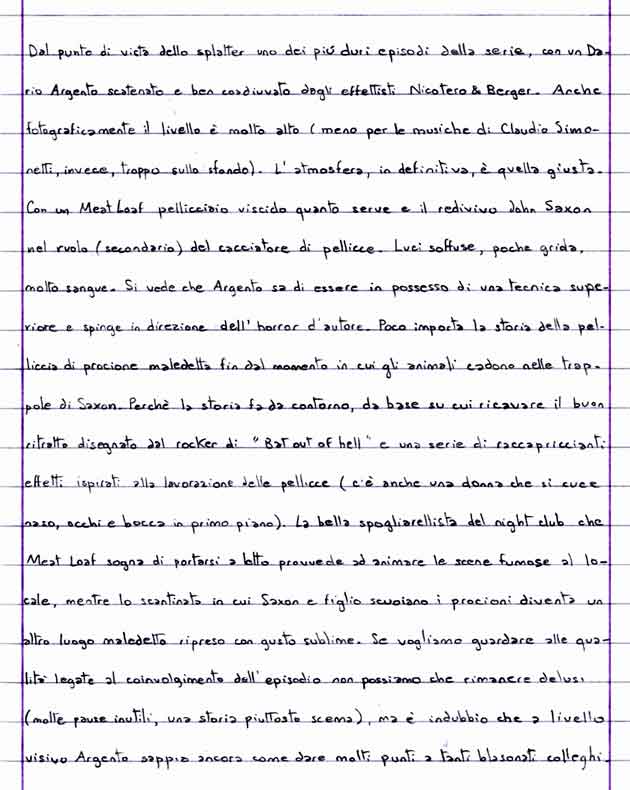 Dal punto di vista dello splatter uno dei più duri episodi della serie, con un Da-
rio Argento scatenato e ben coadiuvato dagli effettisti Nicotero & Berger. Anche
fotograficamente il livello è molto alto (meno per le musiche di Claudio Simo-
netti, invece, troppo sullo sfondo). L'atmosfera, in definitiva, è quella giusta.
Con un Meat Loaf pellicciaio viscido quanto serve e il redivivo John Saxon
nel ruolo (secondario) del cacciatore di pellicce. Luci soffuse, poche grida,
molto sangue. Si vede che Argento sa di essere in possesso di una tecnica supe-
riore e spinge in direzione dell'horror d'autore. Poco importa la storia della pel-
liccia di procione maledetta fin dal momento in cui gli animali cadono nelle trap-
pole di Saxon. Perchè la storia fa da contorno, da base su cui ricavare il buon
ritratto disegnato dal rocker di "Bat out of hell" e una serie di raccapriccianti
effetti ispirati alla lavorazione delle pellicce (c'è anche una donna che si cuce
naso, occhi e bocca in primo piano). La bella spogliarellista del night club che
Meat Loaf sogna di portarsi a letto provvede ad animare le scene fumose al lo-
cale, mentre lo scantinato in cui Saxon e figlio scuoiano i procioni diventa un
altro luogo maledetto ripreso con gusto sublime. Se vogliamo guardare alle qua-
lità legate al coinvolgimento dell'episodio non possiamo che rimanere delusi
(molte pause inutili, una storia piuttosto scema), ma è indubbio che a livello
visivo Argento sappia ancora come dare molti punti a tanti blasonati colleghi.